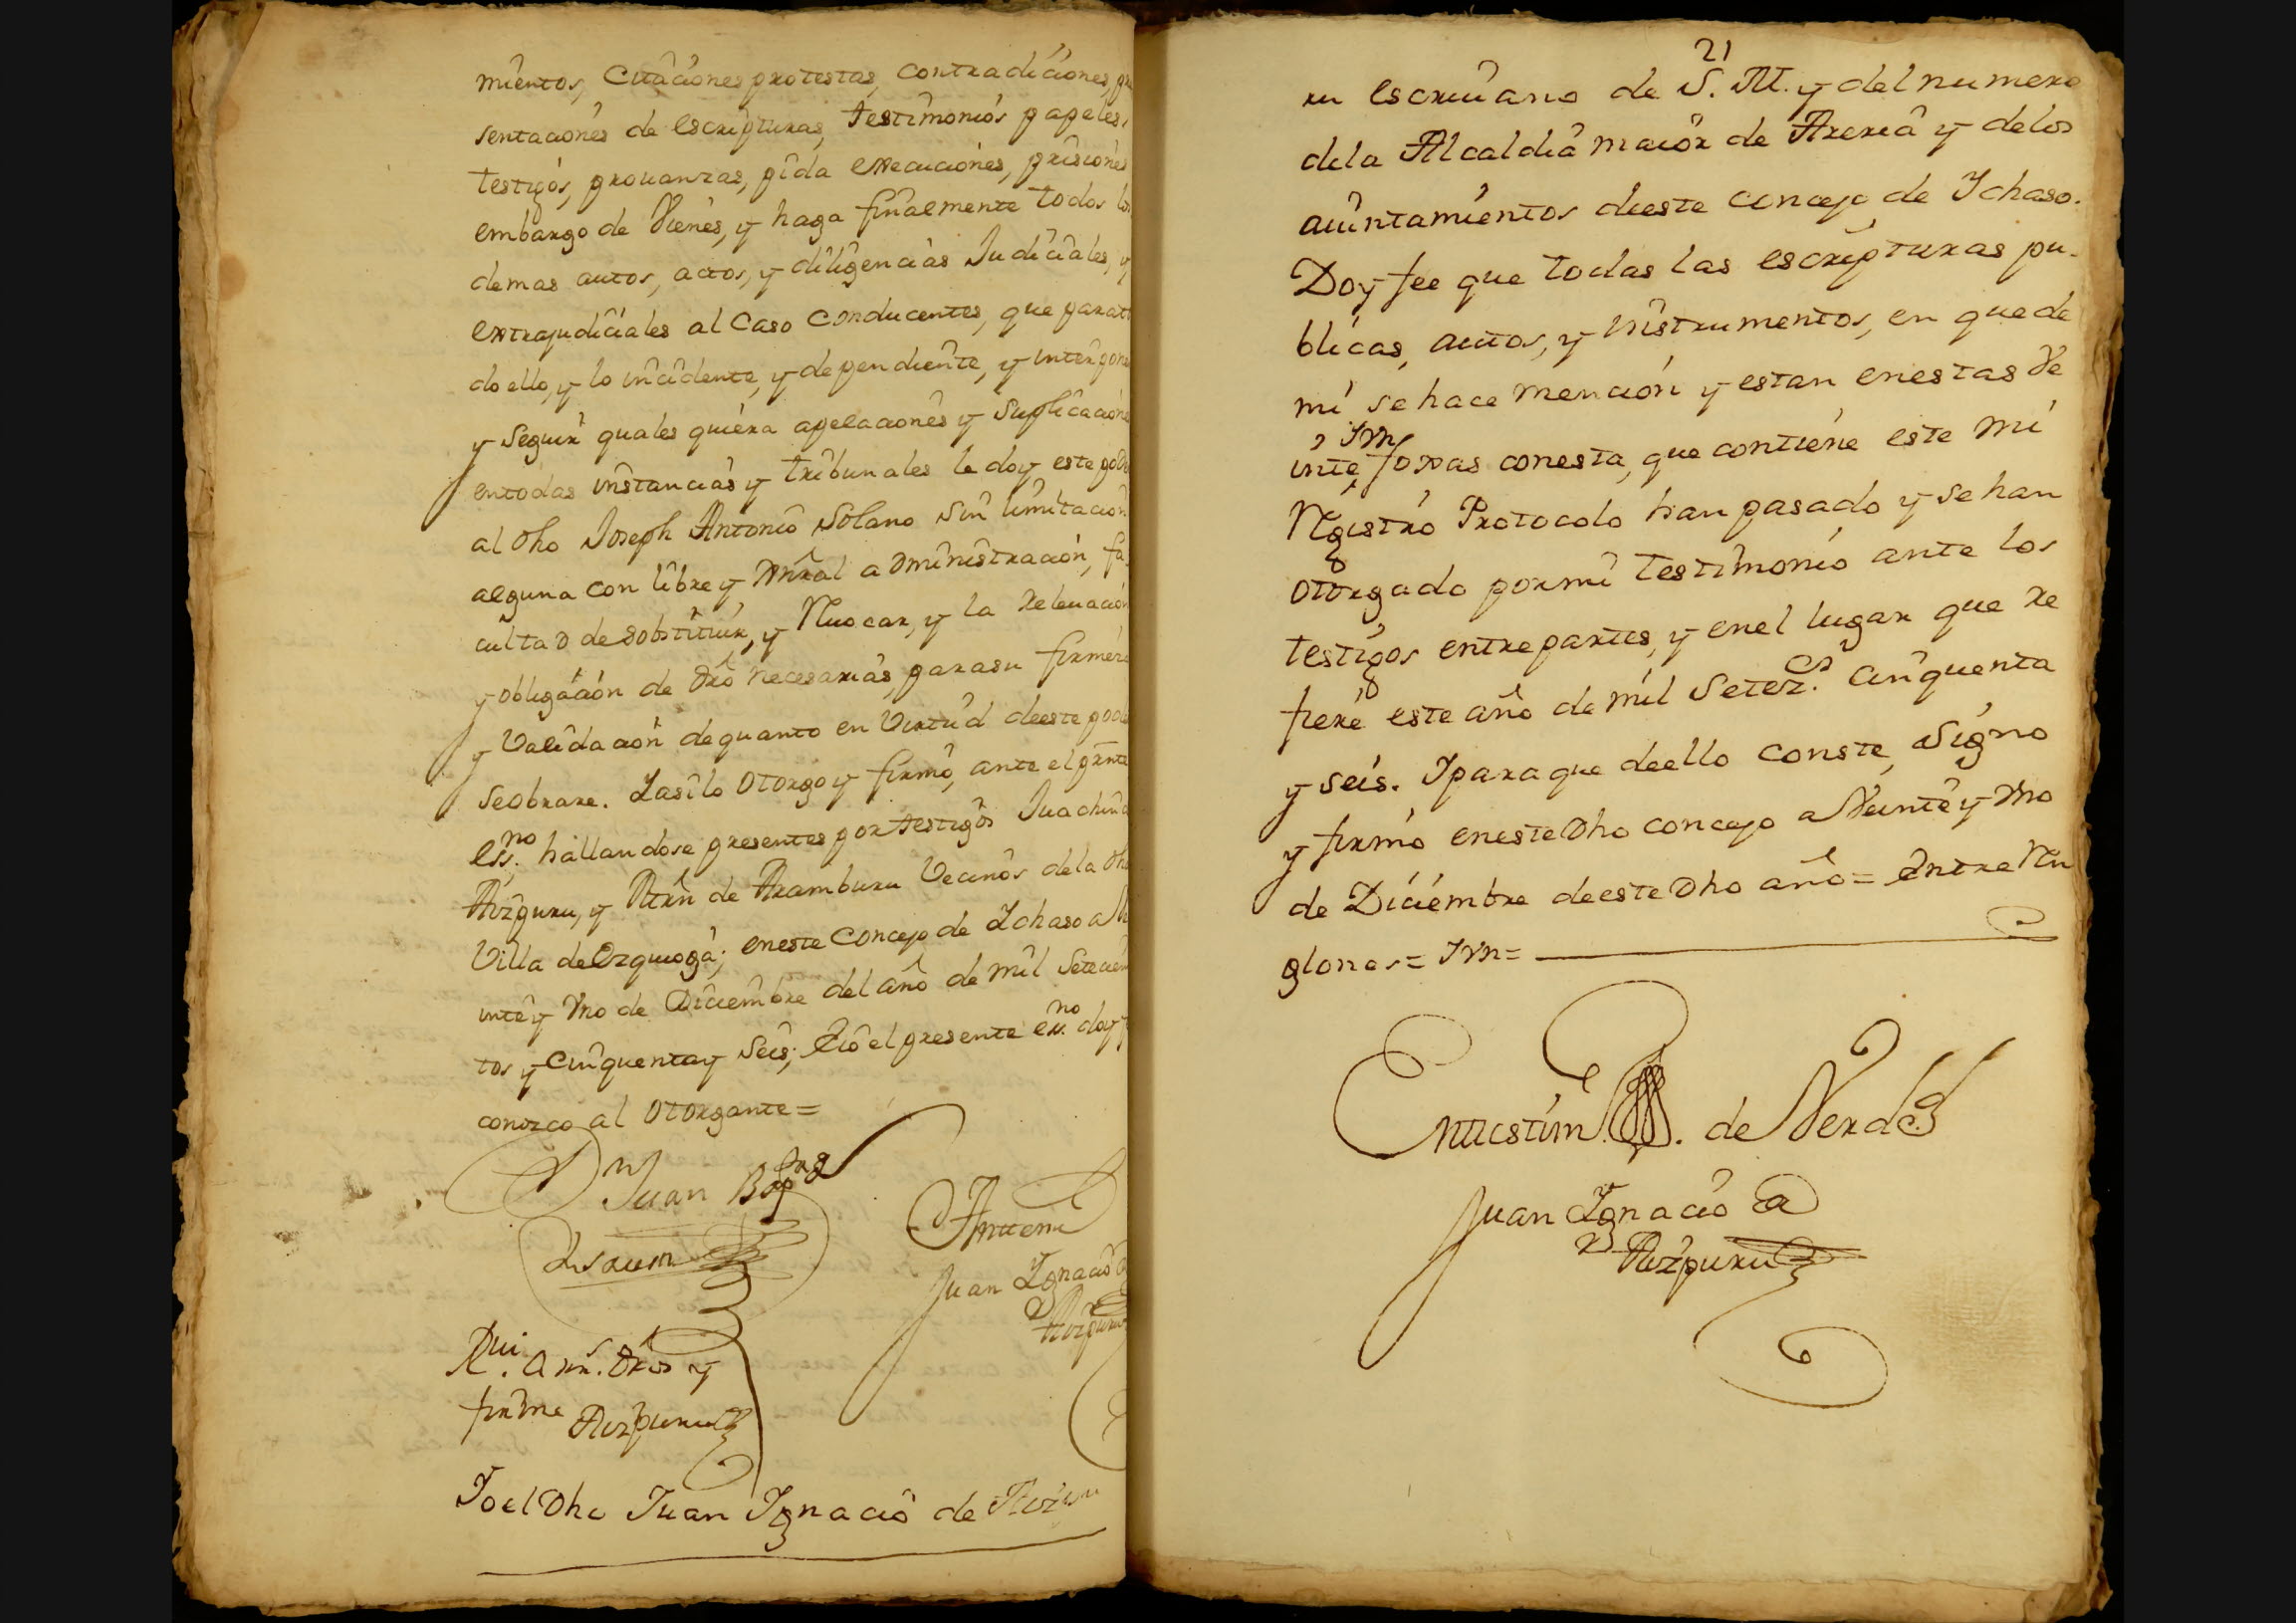 mientos, Citaciones protestas, contradiciones, pre
sentaciones de escripturas, testimonios papeles,
testigos, prouanzas, pida execuciones, prisiones
embargo de Vienes, y haga finalmente todos los
demas autos, actos, y diligencias Judiciales, y
extrajudiciales al Caso Conducentes, que para to
do ello, y lo incidente, y dependiente, y interpone
y Seguir quales quiera apelaciones y Suplicacione
entodas instancias y tribunales le doy este pode
al dho Joseph Antonio Solano Sin limitacion
alguna con libre y Gral administracion, fa
cultad de sobstituir, y Reuocar, y la Releuacion
y obligacion de dro necesarias, para su firmeza
y Validacion dequanto en Virtud deeste pode
Seobrare. Yasilo Otorgo y firmó, ante el prnte
essno. hallandose presentes por testigos Juachin d
Aizpuru, y Mrn de Aramburu Vecinos dela dha
Villa de Ezquioga; eneste Concejo de Ychaso a Ve
inte y Vno de Diciembre del año de mil Setecien
tos y Cinquenta y Seis; Eio el presente essno doy f
conozco al Otorgante=
Dn Juan Bapta
Antemi
Juan Ygnacio d
Aizpuru
Rui. a ss. dros y
firme Aizpuru
Yo el Dho Juan Ygnacio de Aizpu
21
ru escriuano de S. M. y del numero
dela Alcaldia maior de Areria y delos
aiuntamientos deeste concejo de Ychaso.
Doy fee que todas las escripturas pu-
blicas, autos, y instrumentos, en que de
mi se hace mencion y estan enestas Ve
inte, y vn foxas conesta, que contiene este mi
Registro Protocolo han pasado y se han
otorgado por mi testimonio ante los
testigos entre partes, y enel lugar que re
fiere este año de mil Setezs. cinquenta
y seis. Ypara que deello conste, Signo
y firmo eneste Dho concejo a Veinte y Vno
de Diciembre deeste Dho año= Entre Ren
glones= y vn=
Entestim. . de Verdad
Juan Ygnacio de
Aizpuru